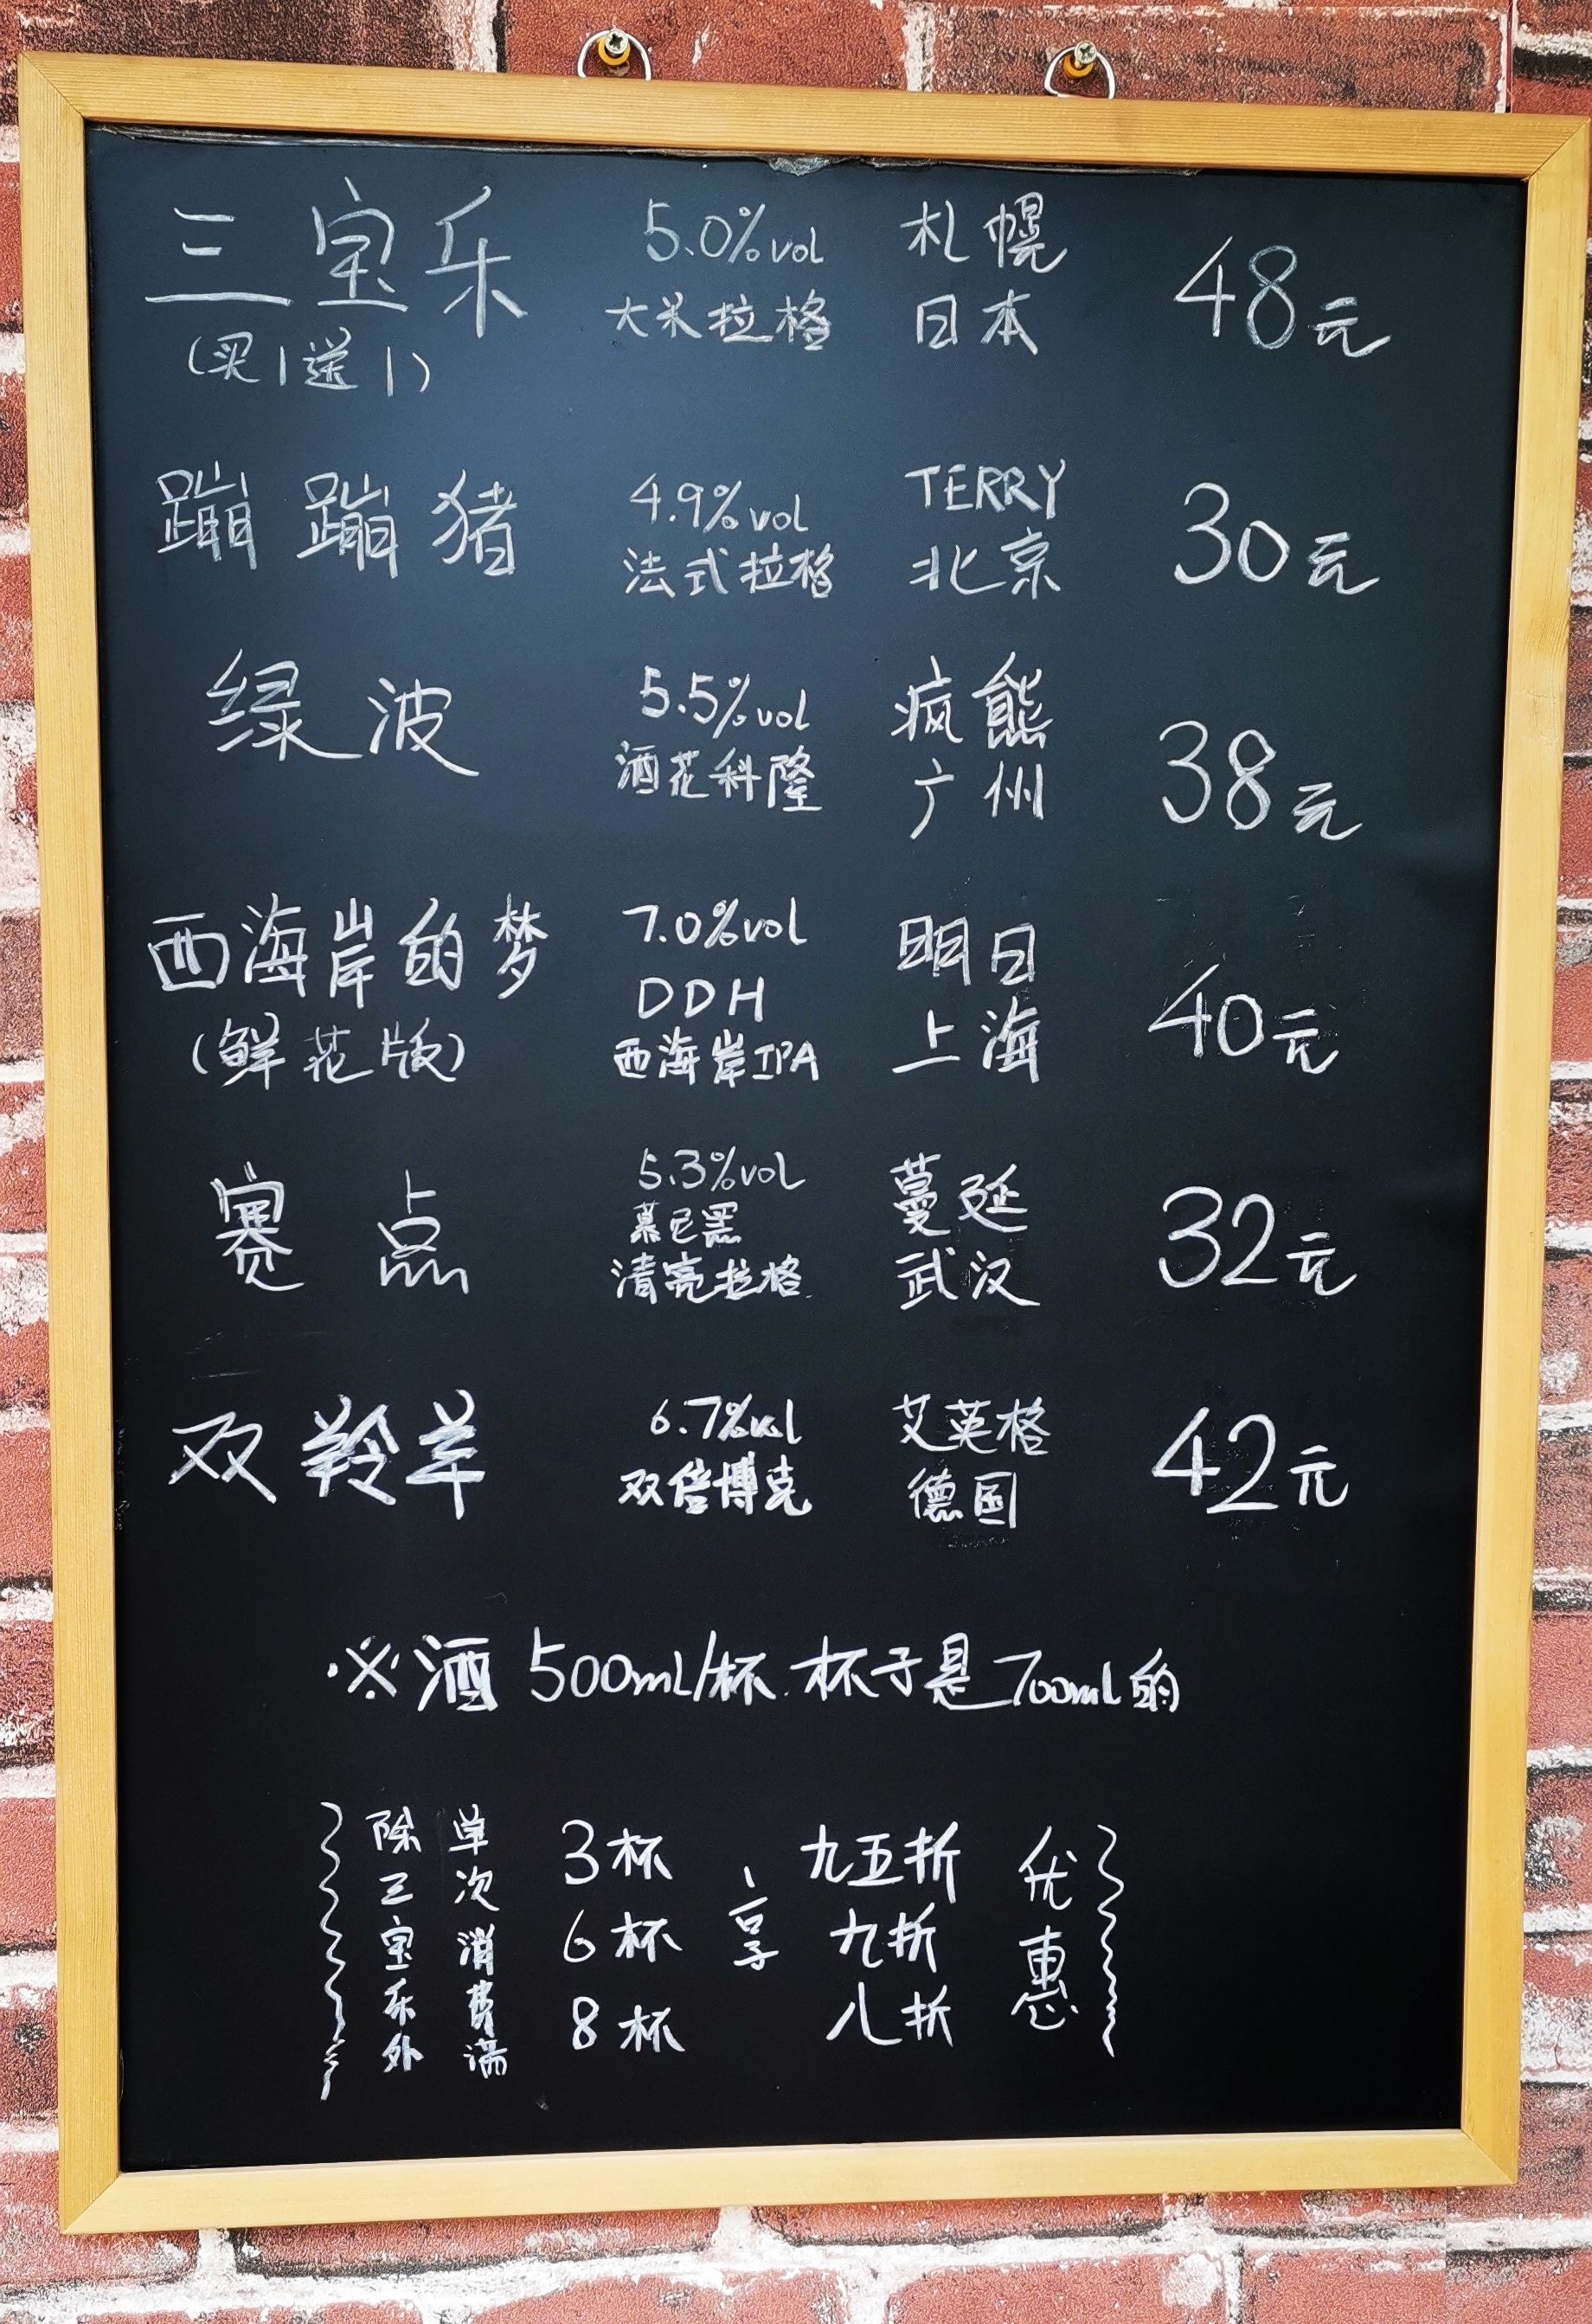 三宝乐 5.0%vol 札幌 48元
(买1送1) 大米拉格 日本
蹦蹦猪 4.9%vol TERRY 30元
法式拉格 北京
绿波 5.5%vol 疯熊 38元
酒花科隆 广州
西海岸的梦 7.0%vol 明日 40元
(鲜花版) DDH 上海
西海岸IPA
赛点 5.3%vol 蔓延 32元
慕尼黑 武汉
清亮拉格
双羚羊 6.7%vol 艾英格 42元
双倍博克 德国
※酒500ml/杯.杯子是700ml的
除三宝乐外
单次消费满
3杯
6杯
8杯
享
九五折
九折
八折
优惠